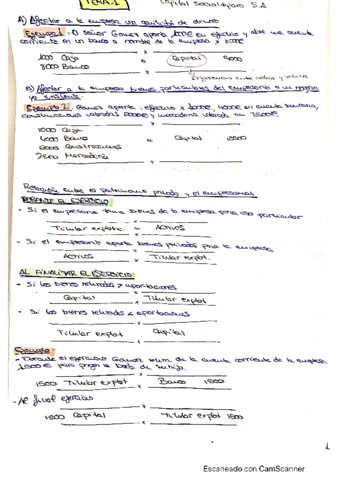 TEMA 1
Capital Social tipo S.A
A) Afectar a la empresa un capital de dinero
Ejemplo 1: O señor Gomes aporta 1000€ en efectivo y abre una cuenta
corriente en un banco a nombre de la empresa x 8000€
1000 Caja
8000 Banco a Capital 9000
Diferencias entre activo y pasivo
B) Afectar a la empresa bienes particulares del empresario a un negocio
ya existente.
Ejemplo 2: Gomes aporta: efectivo x 1000€, 4000€ en cuenta bancaria,
construcciones valoradas 5000€ y mercaderia valorada en 2500€
1000 Caja
4000 Banco a Capital
Construcciones
2500 Mercaderia
Relación entre el patrimonio privado y el empresarial
DURANTE EL EJERCICIO
- Si el empresario toma bienes de la empresa para uso particular
Titular explot. a ACTIVOS
- Si el empresario aporta bienes privados para la empresa
ACTIVOS a Titular explot.
AL FINALIZAR EL EJERCICIO
- Si los bienes retirados > aportaciones
Capital x Titular explot
- Si los bienes retirados < aportaciones
Titular explot Capital
Ejemplo
- Durante el ejercicio Gomes retira de la cuenta corriente de la empresa
1500€ para pagar la boda de su hijo.
1500 Titular explot a Banco 1500
- Al final ejercicio
1500 Capital a Titular explot 1500
1
Escaneado con CamScanner